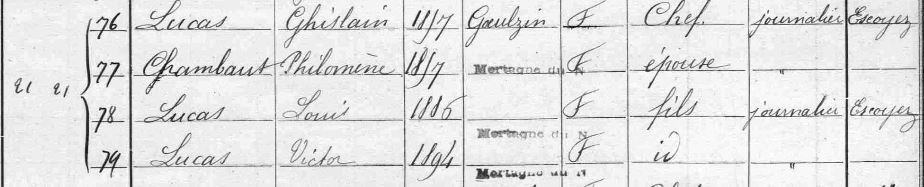 76 Lucas Ghislain 1817 Gaulzin F Chef. journalier Escoyez
21 21 77 Chambaut Philomène 1817 Mortagne du N F épouse "
78 Lucas Louis 1886 Mortagne du N F fils journalier Escoyez
79 Lucas Victor 1894 Mortagne du N F id "